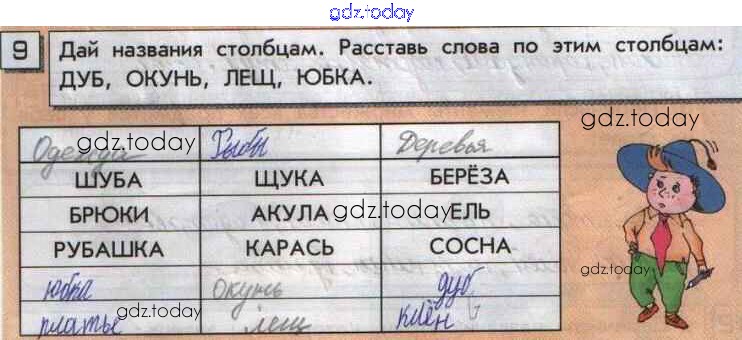 gdz.today
9 Дай названия столбцам. Расставь слова по этим столбцам:
ДУБ, ОКУНЬ, ЛЕЩ, ЮБКА.
gdz.today
gdz.today
Одежда Рыбы Деревья
ШУБА ЩУКА БЕРЁЗА
БРЮКИ АКУЛА gdz.today ЕЛЬ
РУБАШКА КАРАСЬ СОСНА
gdz.today
юбка окунь дуб
gdz.today
платье лещ клён